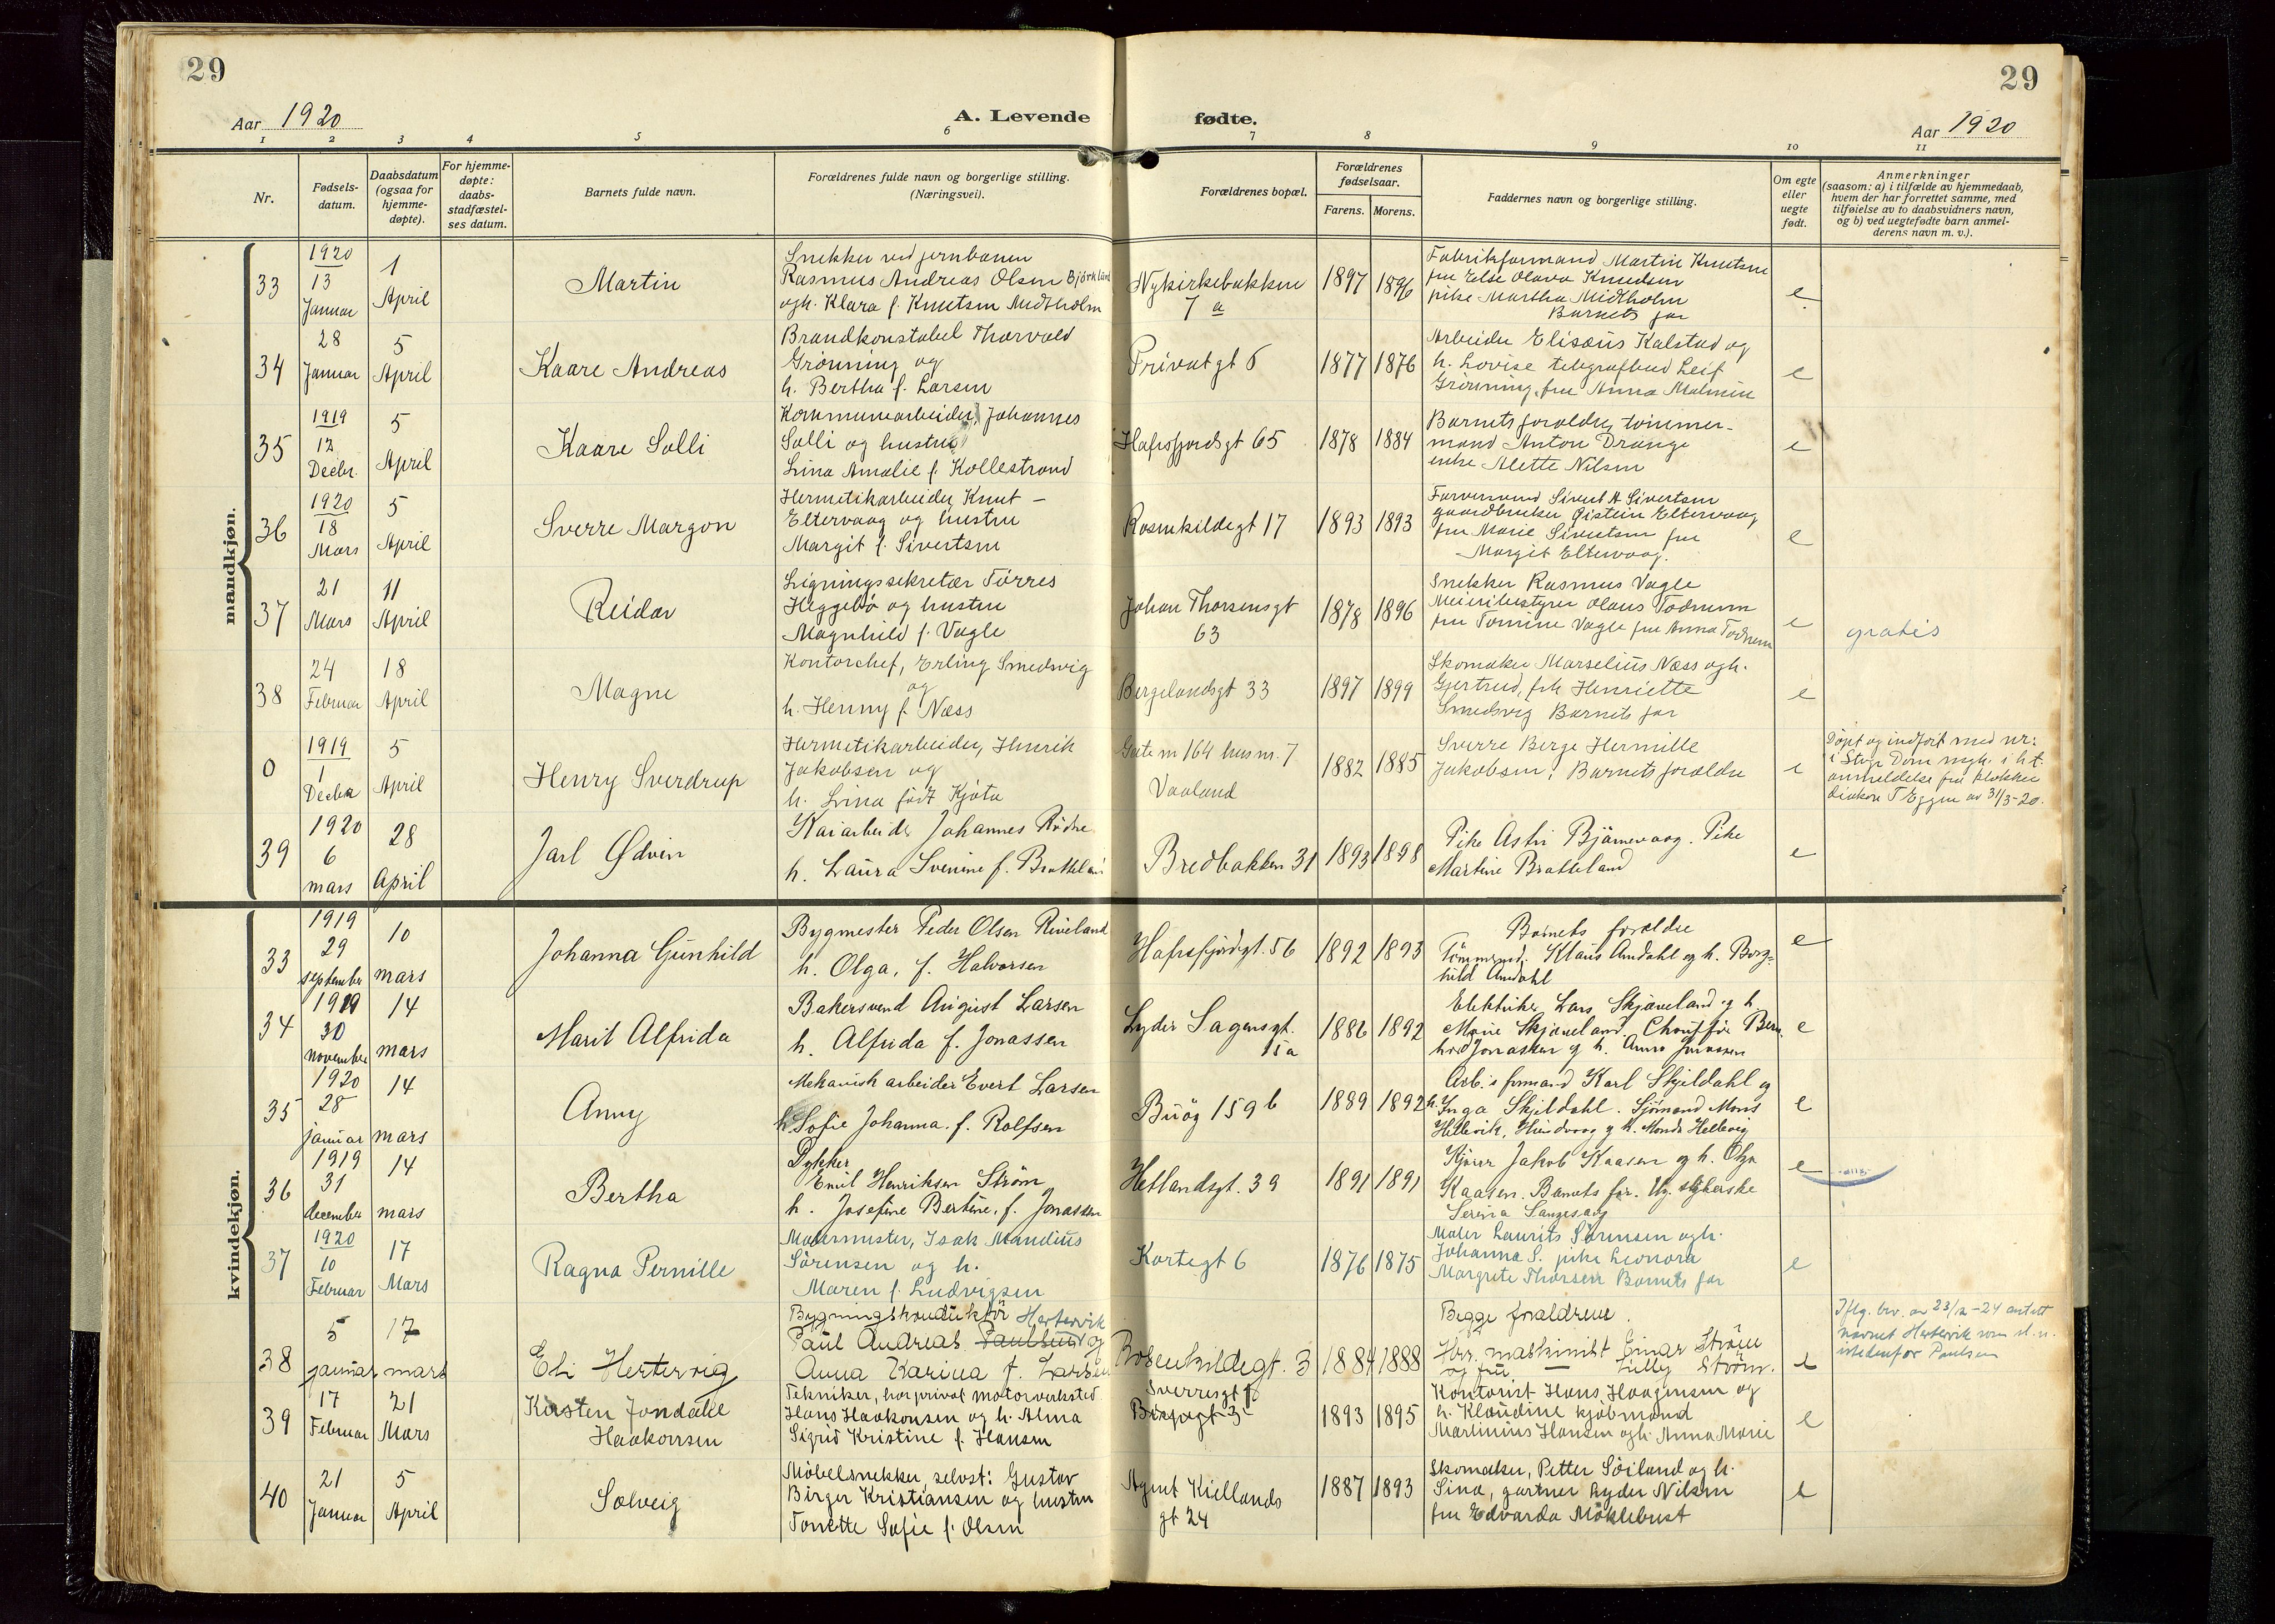 29
29
Aar 1920
A. Levende fødte.
Aar 1920
1 2 3 4 5 6 7 8 9 10 11
Nr.
Fødsels-
datum.
Daabsdatum
(ogsaa for
hjemme-
døpte).
For hjemme-
døpte:
daabs-
stadfæstel-
ses datum.
Barnets fulde navn.
Forældrenes fulde navn og borgerlige stilling.
(Næringsvei).
Forældrenes bopæl.
Forældrenes
fødselsaar.
Farens. Morens.
Faddernes navn og borgerlige stilling.
Om egte
eller
uegte
født.
Anmerkninger
(saasom: a) i tilfælde av hjemmedaab,
hvem der har forrettet samme, med
tilføielse av to daabsvidners navn,
og b) ved uegtefødte barn anmel-
derens navn m. v.).
mandkjøn.
33
1920
13
Januar
1
April
Martin
Snekker ved jernbanen
Rasmus Andreas Olsen Bjørklund
og h. Klara f. Knutsen Midtholm
Nykirkebakken
7 a
1897 1896
Fabrikformand Martin Knutsen
fru Else Olava Knudsen
pike Martha Midtholm
Barnets far
e
34
28
Januar
5
April
Kaare Andreas
Brandkonstabel Thorvald
Grönning og
h. Bertha f. Larsen
Privatgt 6
1877 1876
Arbeider Elisæus Kalstad og
h. Lovise telegrafbud Leif
Grönning, fru Anna Malmin
e
35
1919
12
Decbr
5
April
Kaare Solli
Kommunearbeider, Johannes
Solli og hustru
Lina Amalie f. Kollestrand
Hafrsfjordsgt 65
1878 1884
Barnets foraldre, tömmer-
mand Anton Drange
enke Alette Nilsen
e
36
1920
18
Mars
5
April
Sverre Margon
Hermetikarbeider, Knut
Eltervaag og hustru
Margit f. Sivertsen
Rosenkildegt 17
1893 1893
Sivert A Sivertsen
gaardbruker Øistein Eltervaag
fru Marie Sivertsen fru
Margit Eltervaag.
e
37
21
Mars
11
April
Reidar
Ligningssekretær Törres
Heggebö og hustru
Magnhild f. Vagle
Johan Thorsensgt
63
1878 1896
Snekker Rasmus Vagle
Meieribestyrer Olaus Todnem
fru Tomine Vagle fru Anna Todnem
e
gratis
38
24
Februar
18
April
Magne
Kontorchef, Erling Smedsvig
og
h. Henny f. Næss
Bergelandsgt 33
1897 1899
Skomaker Marselius Næss og h.
Gjertrud, frk Henriette
Smedsvig Barnets far
e
0
1919
1
Decbr
5
April
Henry Sverdrup
Hermetikarbeider, Henrik
Jakobsen og
h. Lina födt Kjöta
Gate nr 164 hus nr. 7
Vaaland
1882 1885
Sverre Berge Hermille
Jakobsen; Barnets foraldre
e
Döpt og indfört med nr:
i Stvgr Dom mgh. i h.t.
anmeldelse fra klokker
diakon T Eggen av 31/3-20.
39
1920
6
mars
28
April
Jarl Ødvin
Kaiarbeider Johannes Rödne
h. Laura Svenine f. Bratteland
Bredbakken 31
1893 1898
Pike Astri Bjärnevaag. Pike
Martine Bratteland
e
kvindekjøn.
33
1919
29
september
10
mars
Johanna Gunhild
Bygmester Peder Olsen Riveland
h. Olga, f. Halvorsen
Hafrsfjordgt. 56
1892 1893
Barnets forældre
Tömmermd. Klaus Amdahl og h. Borg-
hild Amdahl
e
34
1919
30
november
14
mars
Marit Alfrida
Bakersvend August Larsen
h. Alfrida f. Jonassen
Lyder Sagensgt.
15a
1886 1892
Elektriker Lars Skjæveland og h
Marie Skjæveland. Chauffør Bern-
hard Jonassen og h. Anna Jonassen
e
35
1920
28
januar
14
mars
Anny
Mekanisk arbeider Evert Larsen
h. Sofie Johanna. f. Rolfsen
Buög 159 b
1889 1892
Arb.s formand Karl Skjeldahl og
h. Inga Skjeldahl. Sjömand Mons
Hellevik, Hundvaag og h. Monda Hellevig
e
36
1919
31
december
14
mars
Bertha
Dykker
Emil Henriksen Ström
h. Josefine Bertine, f. Jonassen
Hetlandsgt. 39
1891 1891
Kjörer Jakob Kaasen og h. Olga
Kaasen. Barnets far. Ug. syerske
Serina Langesaug
e
37
1920
10
Februar
17
Mars
Ragna Pernille
Malermester, Isak Mandius
Sörensen og h.
Maren f. Ludvigsen
Kortegt 6
1876 1875
Maler Laurits Sörensen og h.
Johanna S. pike Leonora
Margrete Thorsen Barnets far
e
38
5
januar
17
mars
Eli Hertervig
Bygningskonduktör Hertervik
Paul Andreas Paulsen og
Anna Karina f. Larsen
Rosenkildegt. 3
1884 1888
Begge foraldrene.
Hrr. maskinist Einar Ström
og fru — Lilly Ström.
e
Iflg. bev. av 23/12-24 antatt
navnet Hertervik som sl.n.
istedenfor Paulsen
39
17
Februar
21
Mars
Kirsten Jondalie
Haakonsen
Tekniker, har privat motorverksted
Hans Haakonsen og h. Alma
Sigrid Kristine f. Hansen
Sverresgt 8
1893 1895
Kontorist Hans Haagensen og
h. Klaudine kjöbmand
Martinius Hansen og h. Anna Marie
e
40
21
Januar
5
April
Solveig
Möbelsnekker, selvst: Gustav
Birger Kristiansen og hustru
Tonette Sofie f. Olsen
Agent Kiellands
gt 24
1887 1893
Skomaker, Petter Söiland og h.
Sina, gartner Lyder Nilsen
fru Edvarda Möklebust
e